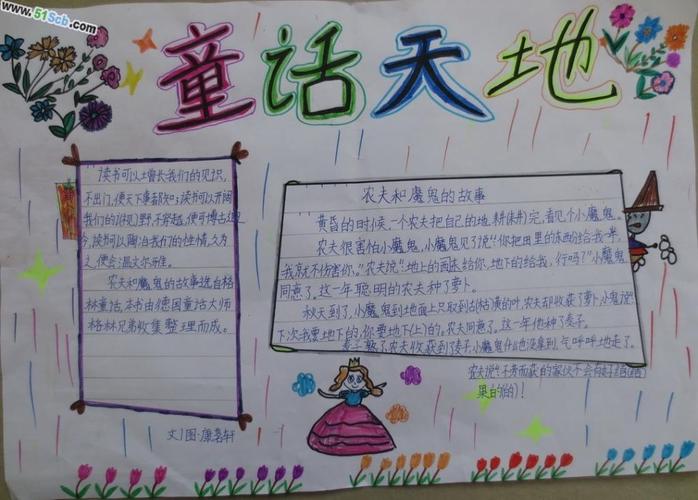 www.51Scb.com
童话天地
读书可以增长我们的见识,
不出门,便天下事都知;读书可以开阔
我们的视野,不穿越,便可博古通
今,读书可以陶冶我们的性情,久为
之,便会:温文尔雅。
农夫和魔鬼的故事选自格
林童话,本书由德国童话大师
格林兄弟收集整理而成。
文/图·康茗轩
农夫和魔鬼的故事
黄昏的时候,一个农夫把自己的地耕完,看见个小魔鬼。
农夫很害怕小魔鬼,小魔鬼见了说:“你把田里的东西给我,
我就不伤害你。”农夫说:“地上的给你,地下的给我,行吗?”小魔鬼
同意了。这一年聪明的农夫种了萝卜。
秋天到了,小魔鬼到地面上只取到枯黄的叶,农夫却收获了萝卜,小鬼说:“
下次我要地下的,你要地上的。”农夫同意了。这一年他种了麦子。
麦子熟了,农夫收获到了麦子,小魔鬼什么也没拿到,气呼呼地走了。
农夫说:“不劳而获的家伙不会有好结
果的!